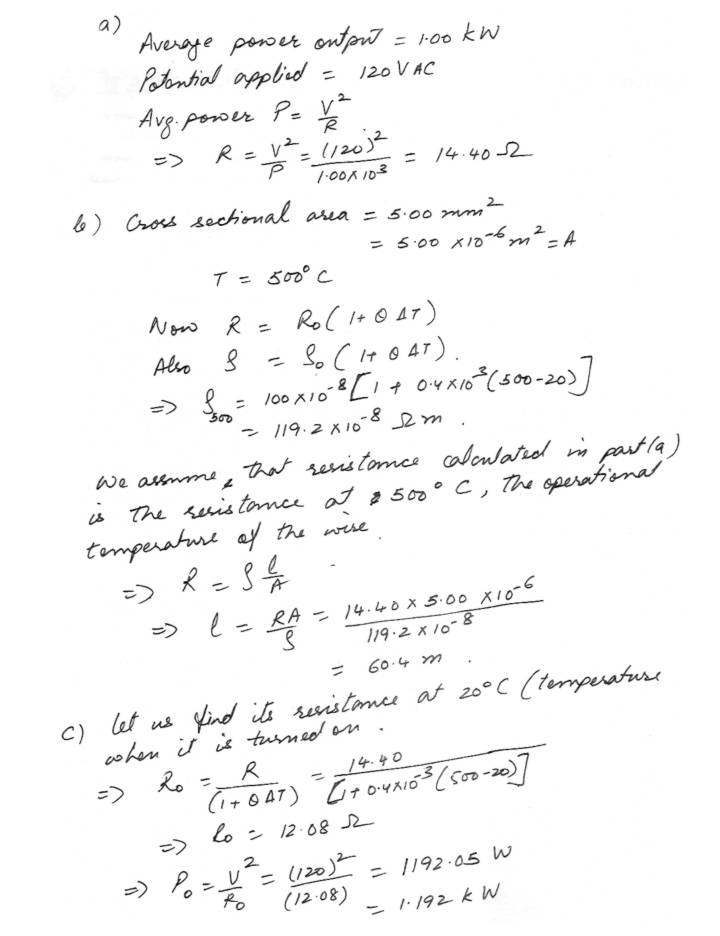 a)
Average power output = 1.00 kW
Potential applied = 120 V AC
Avg. power P = V²/R
=> R = V²/P = (120)²/1.00×10³ = 14.40 Ω
b) Cross sectional area = 5.00 mm²
= 5.00 × 10⁻⁶ m² = A
T = 500° C
Now R = R₀ ( 1 + θ ΔT )
Also ρ = ρ₀ ( 1 + θ ΔT ).
=> ρ₅₀₀ = 100 × 10⁻⁸ [ 1 + 0.4 × 10⁻³ (500-20) ]
= 119.2 × 10⁻⁸ Ω m.
We assume, that resistance calculated in part (a)
is the resistance at 500° C, the operational
temperature of the wire.
=> R = ρ l/A
=> l = RA/ρ = 14.40 × 5.00 × 10⁻⁶/119.2 × 10⁻⁸
= 60.4 m.
c) let us find its resistance at 20° C (temperature
when it is turned on.
=> R₀ = R/(1 + θ ΔT) = 14.40/[1 + 0.4×10⁻³ (500-20)]
=> R₀ = 12.08 Ω
=> P₀ = V²/R₀ = (120)²/(12.08) = 1192.05 W
= 1.192 kW